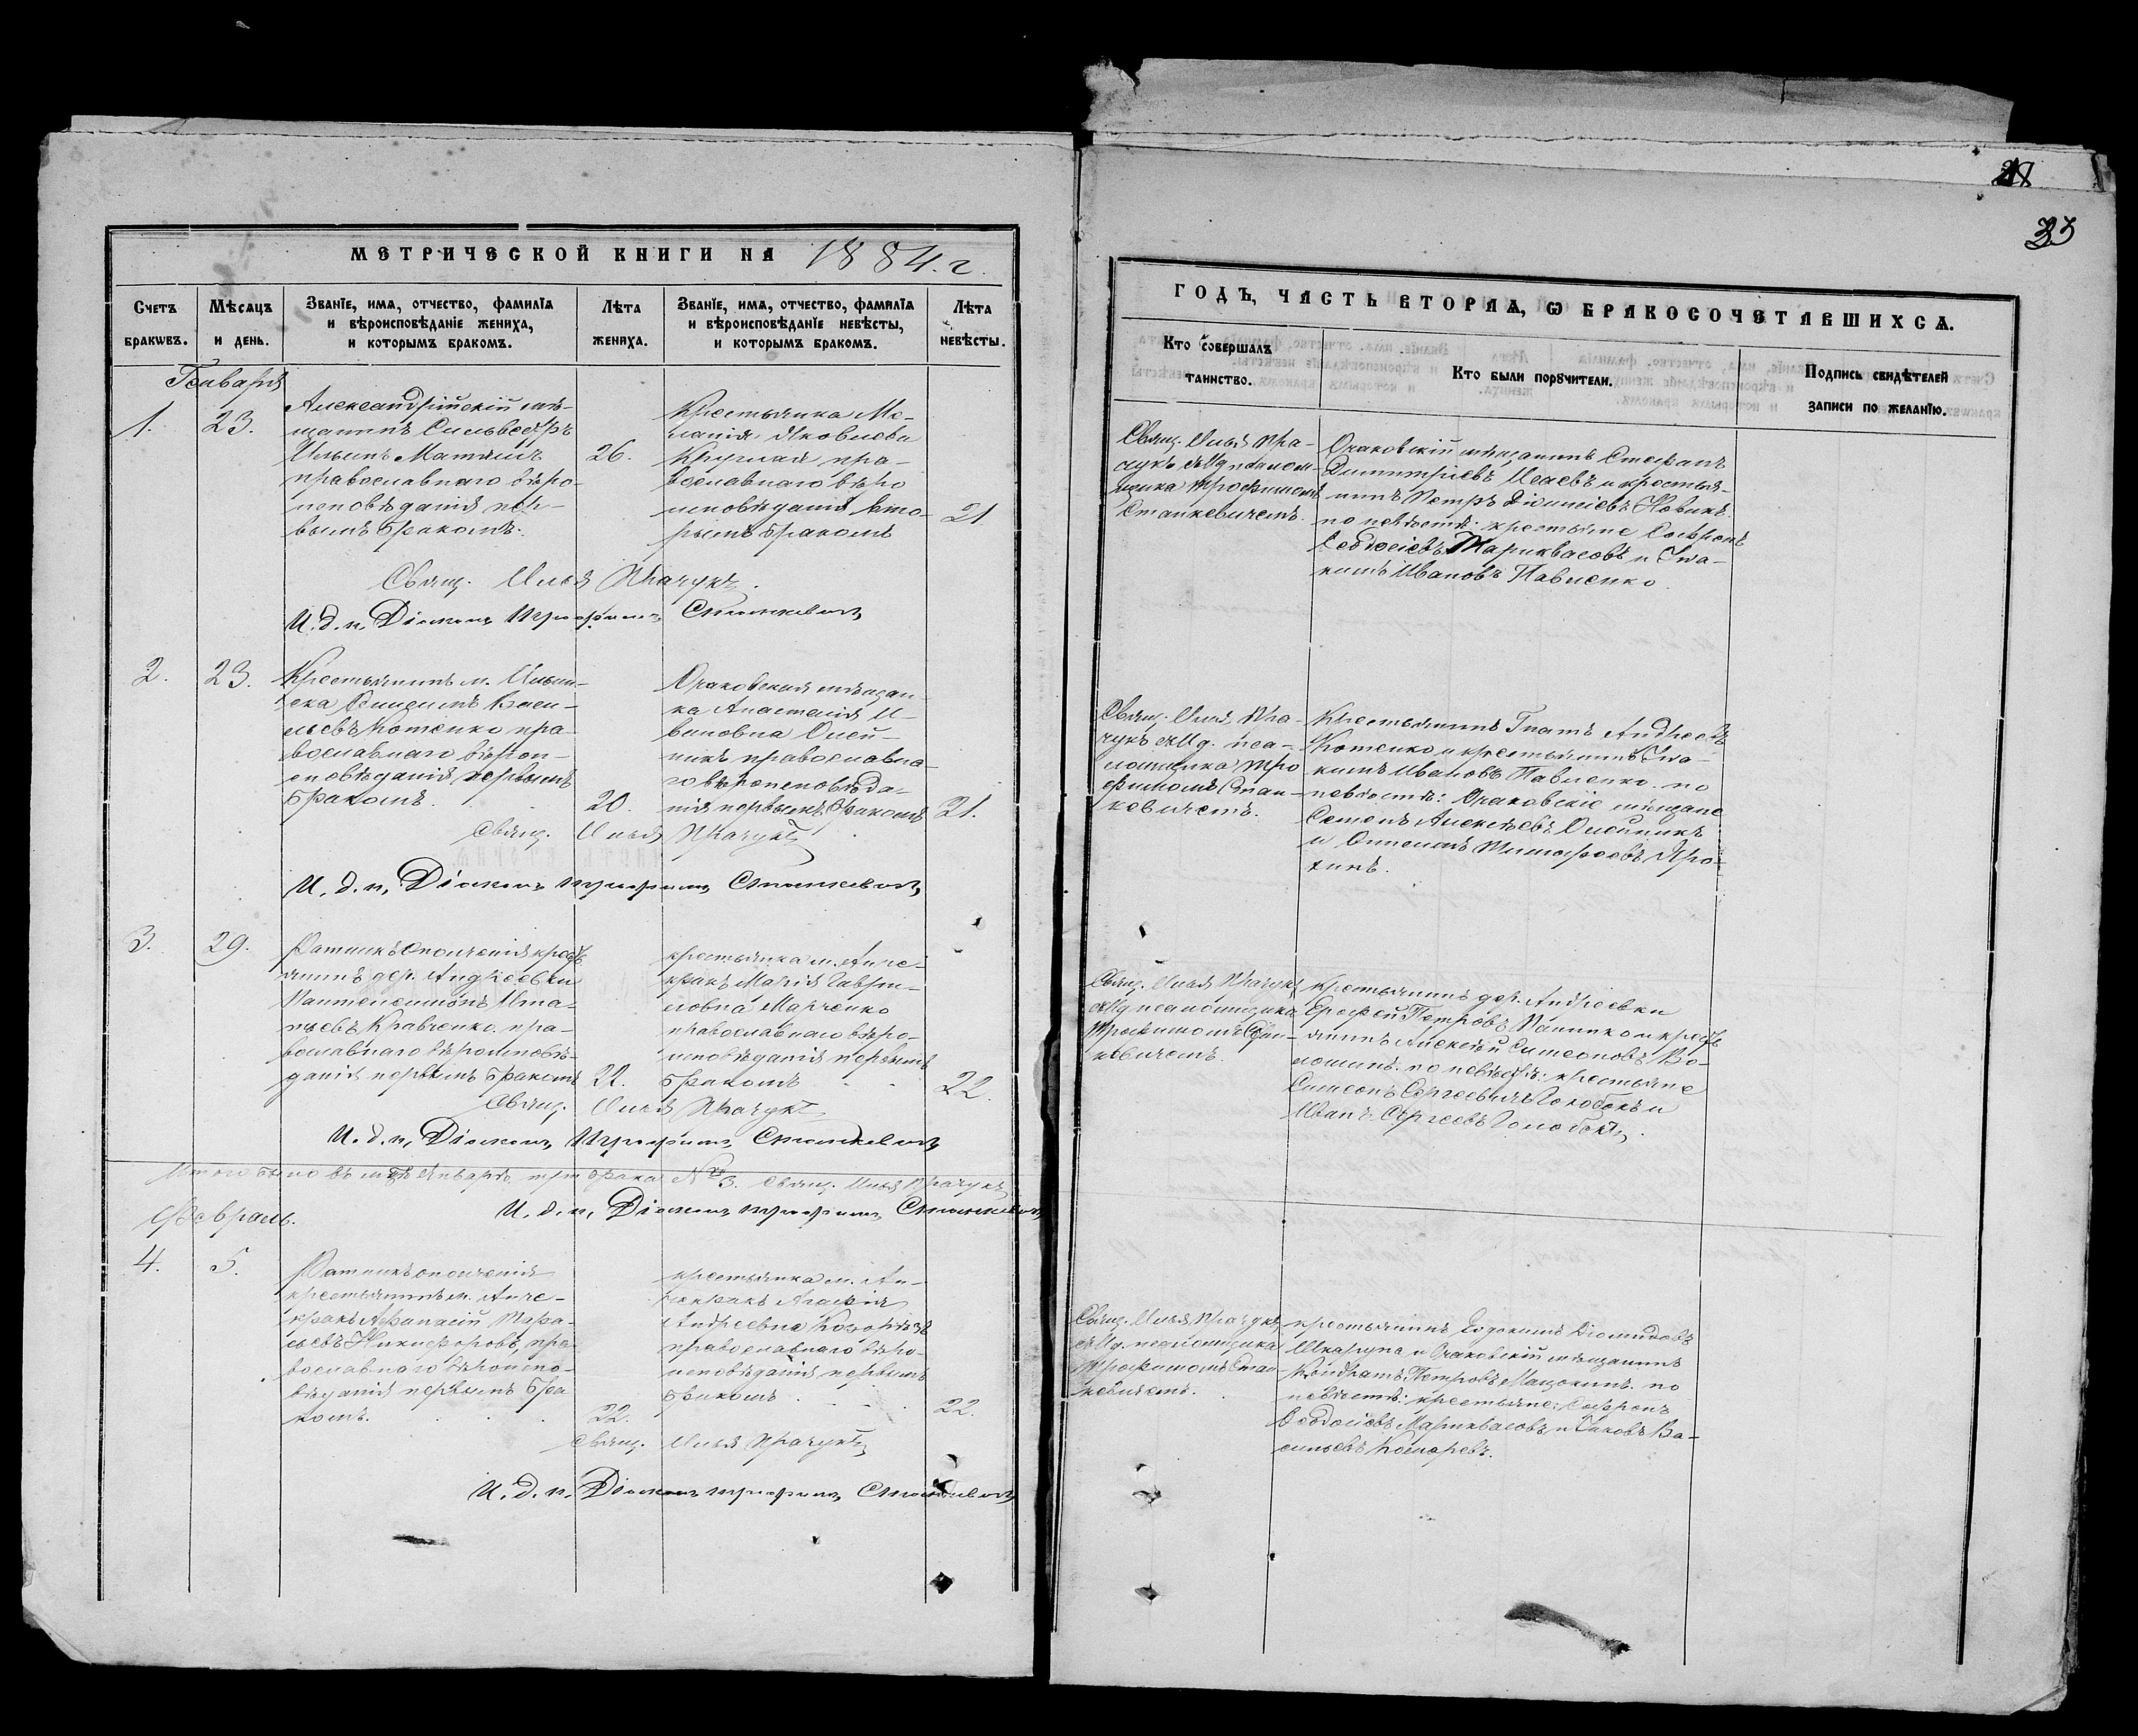 МЕТРИЧЕСКОЙ КНИГИ НА 1884. г.
Счетъ браковъ.
Мѣсяцъ и день.
Званїе, имя, отчество, фамилїя
и вѣроисповѣданїе жениха,
и которымъ бракомъ.
Лѣта жениха.
Званїе, имя, отчество, фамилїя
и вѣроисповѣданїе невѣсты,
и которымъ бракомъ.
Лѣта невѣсты.
Генварь
1.
23.
Александрійскій мѣ-
щанинъ Сильвестръ
Ильинъ
православнаго вѣро-
исповѣданія пер-
вымъ бракомъ.
26.
Крестьянка Ме-
ланія Яковлева
Круглая пра-
вославнаго вѣро
исповѣданія вто-
рымъ бракомъ
21
Свящ. Илья Ткачукъ.
И. д. п. Діаконъ Трофимъ Станкевичъ
2.
23.
Крестьянинъ м. Ильин-
ска Васи-
льевъ Котенко пра-
вославнаго вѣрои-
сповѣданія первымъ
бракомъ.
20.
Очаковская мѣщан-
ка Анастасія И-
вановна Олей-
никъ православна-
го вѣроисповѣда-
нія первымъ бракомъ
21.
Свящ. Илья Ткачукъ
И. д. п. Діаконъ Трофимъ Станкевичъ
3.
29.
Ратникъ ополченія крест
янинъ дер. Андреевки
Пантелеимонъ Игна-
тьевъ Кравченко пра-
вославнаго вѣроисповѣ-
данія первымъ бракомъ
22.
крестьянка м. Анче-
кракъ Марія Гаври-
ловна Марченко
православнаго вѣро-
исповѣданія первымъ
бракомъ
22.
Свящ. Илья Ткачукъ
И. д. п. Діаконъ Трофимъ Станкевичъ
Итого было въ мцѣ Январѣ три брака № 3. Свящ. Илья Ткачукъ
И. д. п. Діаконъ Трофимъ Станкевичъ
Февраль.
4.
5.
Ратникъ ополченія
крестьянинъ м. Анче-
кракъ Афанасій Тара-
сьевъ Никифоровъ, пра-
вославнаго вѣроиспо-
вѣданія первымъ бра
комъ.
22.
крестьянка м. Ан-
чекракъ Агафія
Андреевна
православнаго вѣро-
исповѣданія первымъ
бракомъ
22.
Свящ. Илья Ткачукъ
И. д. п. Діаконъ Трофимъ Станкевичъ
33
ГОДЪ, ЧАСТЬ ВТОРАЯ, Ѡ БРАКОСОЧЕТАВШИХСЯ.
Кто совершалъ таинство.
Кто были порꙋчители.
Подпись свидѣтелей
записи по желанїю.
Свящ. Илья Тка-
чукъ съ Ид псалом-
щика Трофимомъ
Станкевичемъ.
Очаковскій мѣщанинъ Стефанъ
Димитріевъ Исаевъ и крестья-
нинъ Петръ Діонисіевъ Новикъ.
по невѣстѣ: крестьяне Софронъ
Ѳеодосіевъ Мариквасовъ и Іоа-
кимъ Ивановъ Павленко.
Свящ. Илья Тка-
чукъ съ Ид. пса-
ломщика Тро
фимомъ Стан-
кевичемъ.
Крестьянинъ Гнатъ Андреевъ
Котенко и крестьянинъ Іоа-
кимъ Ивановъ Павленко. по
невѣстѣ: Очаковскіе мѣщане
Семенъ Алексѣевъ Олейникъ
и Тимофеевъ
Свящ. Илья Ткачукъ
съ Ид псаломщика
Трофимомъ Стан-
кевичемъ.
крестьянинъ дер. Андреевки
Ерофей Петровъ и крест
янинъ Алексѣй Симеоновъ Во-
лошинъ. по невѣстѣ: крестьяне
Симеонъ Сергеевичъ Голобокъ и
Иванъ Сергеевъ Голобокъ.
Свящ. Илья Ткачукъ
съ Ид. псаломщика
Трофимомъ Стан-
кевичемъ.
крестьянинъ Евдокимъ Діомидовъ
Шкарупа и Очаковскій мѣщанинъ
Кондратъ Петровъ по
невѣстѣ: крестьяне: Софронъ
Ѳеодосіевъ Мариквасовъ и Яковъ Ва-
сильевъ